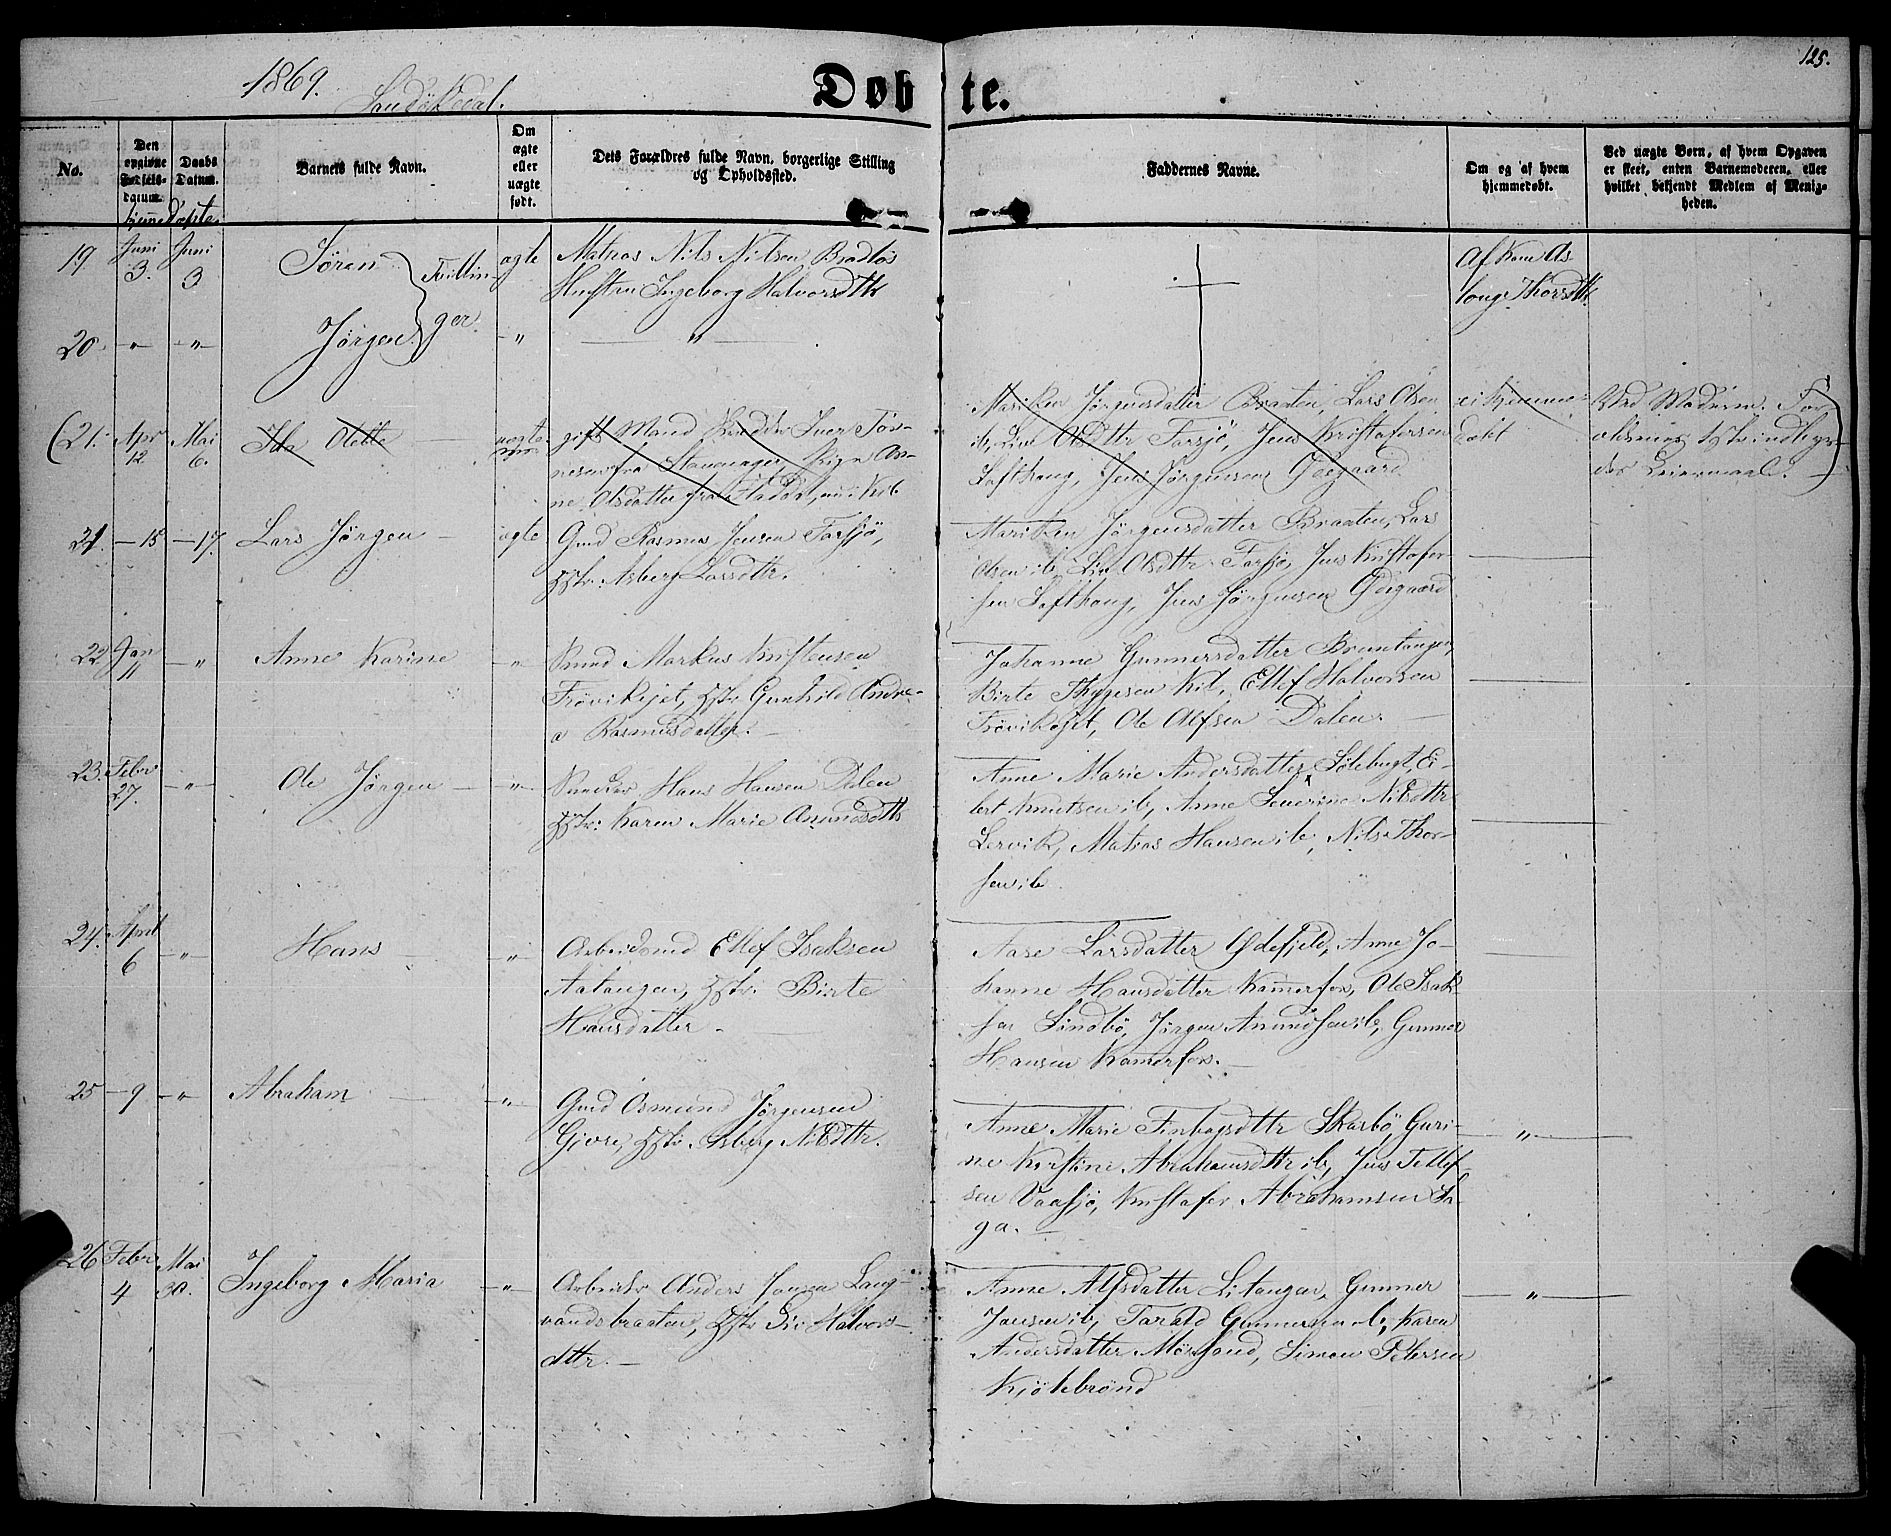 125.
1869. Sandökedal.
Døbte.
No.
Den opgivne Fødsels-datum.
Daabs Datum.
Barnets fulde Navn.
Om ægte eller uægte født.
Dets Forældres fulde Navn, borgerlige Stilling og Opholdssted.
Faddernes Navne.
Om og af hvem hjemmedøbt.
Ved uægte Børn, af hvem Opgaven er skeet, enten Barnemoderen, eller hvilket bekjendt Medlem af Menigheden.
hjemedøpte.
19 Juni 3. Juni 3 Søren Tvillin- ægte Matros Nils Nilsen Bradlös
Hustru Ingeborg Halvorsdttr
Af Kone As
loug Thorsdtr.
20. " " Jørgen ger. " "
(21. Apr 12 Mai 6. Ida Olette uægte
gift Mand Iver Tön-
nesen fra Stavanger, Pige An-
ne Olsdatter fra
Mariken Jørgensdatter Braaten, Lars Olsen
ib, Liv Olsdttr Farsjö, Jens Kristofersen
Lofthoug, Jens Jørgensen Ødegaard
ei hjemme-
døbt
Ved Moderen. For
Leiermaal.)
21. 15 17. Lars Jørgen ægte Gmd Rasmus Jensen Farsjö,
Hstr. Asberg Larsdttr.
Mariken Jørgensdatter Braaten, Lars
Olsen ib, Liv Olsdttr Farsjö, Jens Kristofer-
sen Lofthoug, Jens Jørgensen Ødegaard
22 Jan 11 " Anne Karine " Markus Kristensen
Frövikejet, Hstr Gunhild Andre-
a Rasmusdatter.
Johanne Gunnersdatter Bruntangen,
Birte Thygesen Kil, Ellef Halvorsen
Frövikejet, Ole Alfsen Dalen.
23. Febr 27. " Ole Jørgen " Hans Hansen Dalen
Hstr: Karen Marie Amundsdttr
Anne Marie Andersdatter Sölebugt, Ei-
lert Knutsen ib, Anne Severine Nilsdttr
Lervik, Matias Hansen ib, Nils Thor-
sen ib
24. April 6 " Hans " Arbeidsmd Ellef Isaksen
Aatangen, Hstr. Birte
Hansdatter
Aase Larsdatter Ødefjeld, Anne Jo-
hanne Hansdatter Kamerfos, Ole Isak-
sen Lindbö, Jørgen Amundsen ib, Gunner
Hansen Kamerfos.
25 9 " Abraham " Gmd Osmund Jørgensen
Gjove, Hstr Asberg Nilsdttr.
Anne Marie Finbogsdttr Skarbö, Guri-
ne Kirstine Abrahamsdttr ib, Jens Tellef-
sen Vaasjö, Kristofer Abrahamsen Ta-
ga.
"
26 Febr 4 Mai 30. Ingeborg Maria " Arbeider Anders Jensen Lang-
vandsbraaten, Hstr Liv Halvors-
dttr.
Anne Alfsdatter Litangen, Gunner
Jensen ib, Tarald Gunnersen ib, Karen
Andersdatter Mörland, Simon Petersen
Kjölebrönd
"